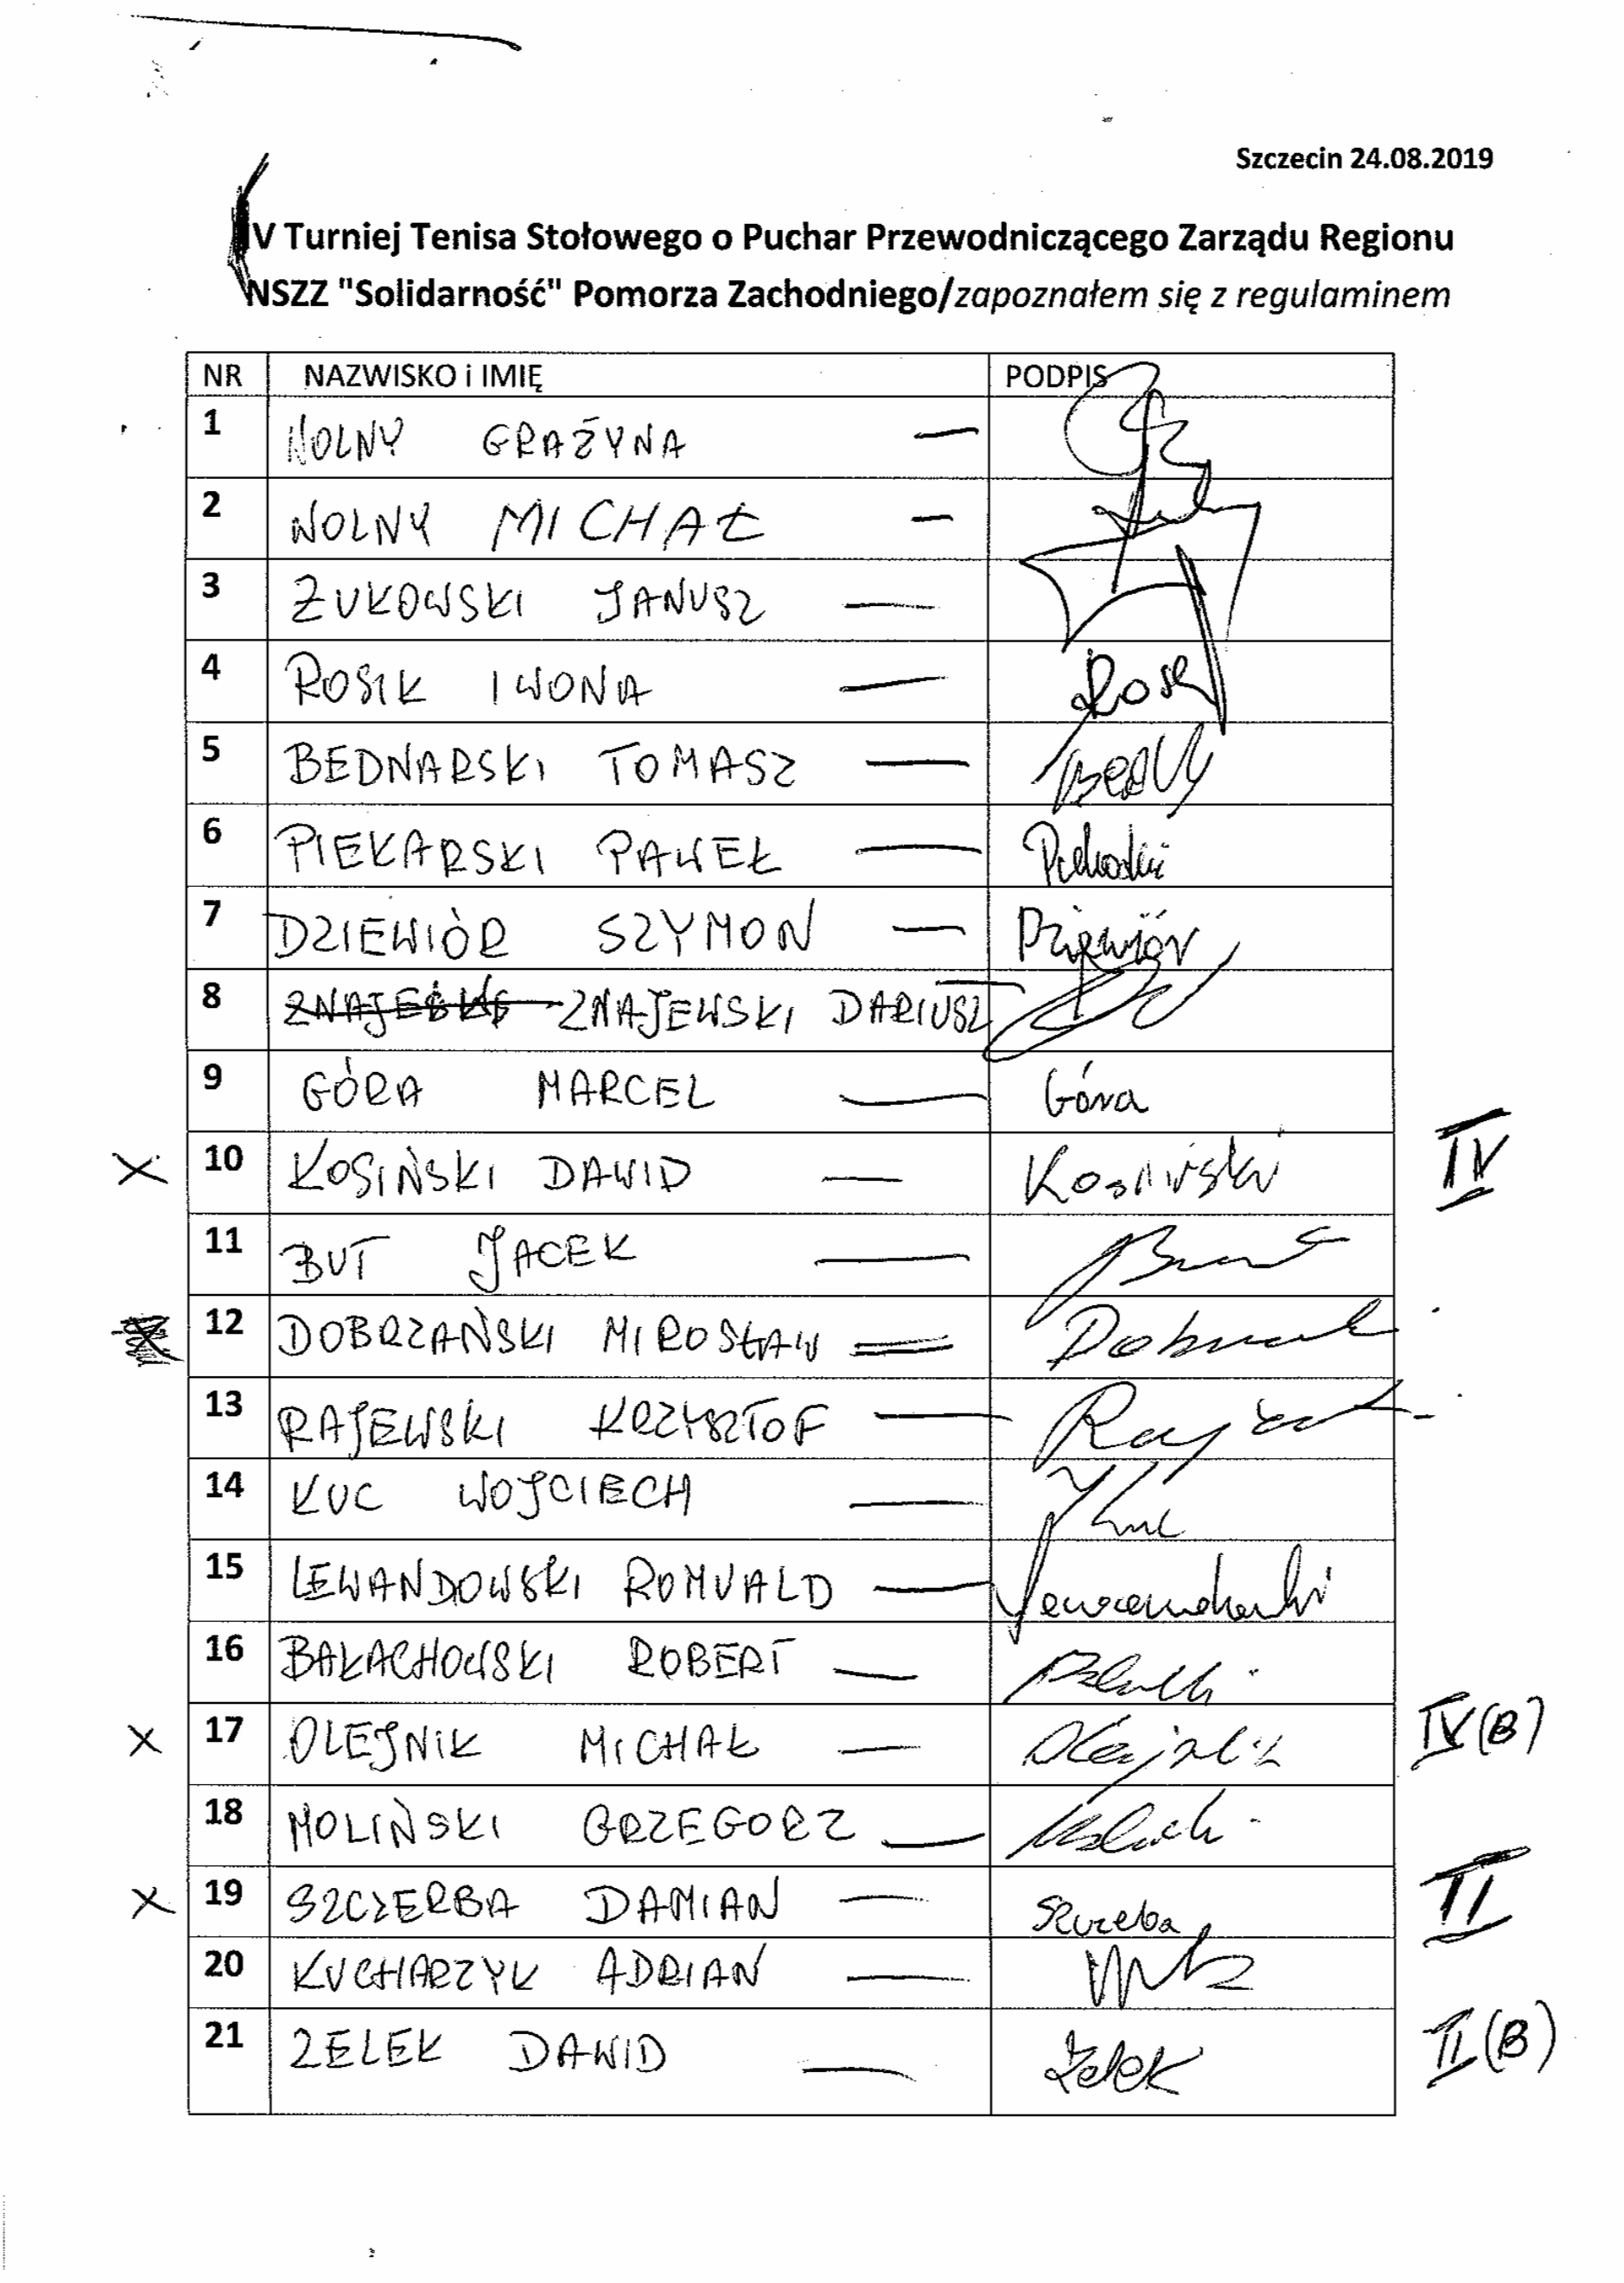 Szczecin 24.08.2019
V Turniej Tenisa Stołowego o Puchar Przewodniczącego Zarządu Regionu
NSZZ "Solidarność" Pomorza Zachodniego/zapoznałem się z regulaminem
NR NAZWISKO i IMIĘ PODPIS
1 WOLNY GRAŻYNA
2 WOLNY MICHAŁ
3 ŻUKOWSKI JANUSZ
4 ROSIK IWONA
5 BEDNARSKI TOMASZ
6 PIEKARSKI PAWEŁ
7 DZIEWIÓR SZYMON Dziewiór
8 ZNAJEWSKI DARIUSZ
9 GÓRA MARCEL Góra
X 10 KOSIŃSKI DAWID Kosiński IV
11 BUT JACEK
12 DOBRZAŃSKI MIROSŁAW
13 RAJEWSKI KRZYSZTOF
14 KUC WOJCIECH Kuc
15 LEWANDOWSKI ROMUALD Lewandowski
16 BAŁACHOWSKI ROBERT
X 17 OLEJNIK MICHAŁ Olejnik IV(B)
18 MOLIŃSKI GRZEGORZ
X 19 SZCZERBA DAMIAN Szczerba II
20 KUCHARZYK ADRIAN
21 ZELEK DAWID Żelek II(B)